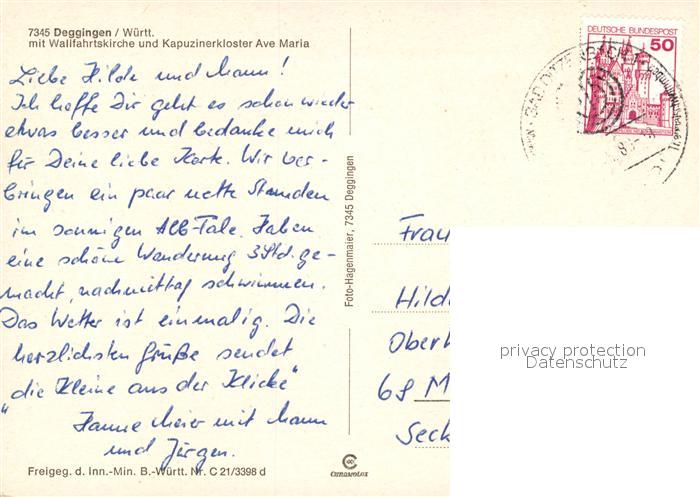 7345 Deggingen / Württ.
mit Wallfahrtskirche und Kapuzinerkloster Ave Maria
Liebe Hilde und Mann!
Ich hoffe Dir geht es schon wieder
etwas besser und bedanke mich
für Deine liebe Karte. Wir ver-
bringen ein paar nette Stunden
im sonnigen Alb-Tale. Haben
eine schöne Wanderung 3 Std. ge-
macht, nachmittag schwimmen.
Das Wetter ist einmalig. Die
herzlichsten Grüße sendet
„die Kleine aus der Klicke"
Hanne Meier mit Mann
und Jürgen.
Freigeg. d. Inn.-Min. B.-Württ. Nr. C 21/3398 d
Foto-Hagenmaier, 7345 Deggingen
DEUTSCHE BUNDESPOST
50
Frau
Hild
Ober
68 M
Seck
privacy protection
Datenschutz